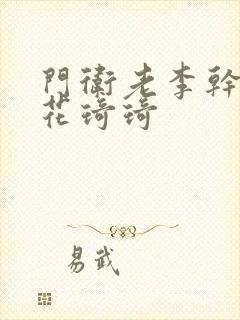 門衛老李幹
花琦琦
易武